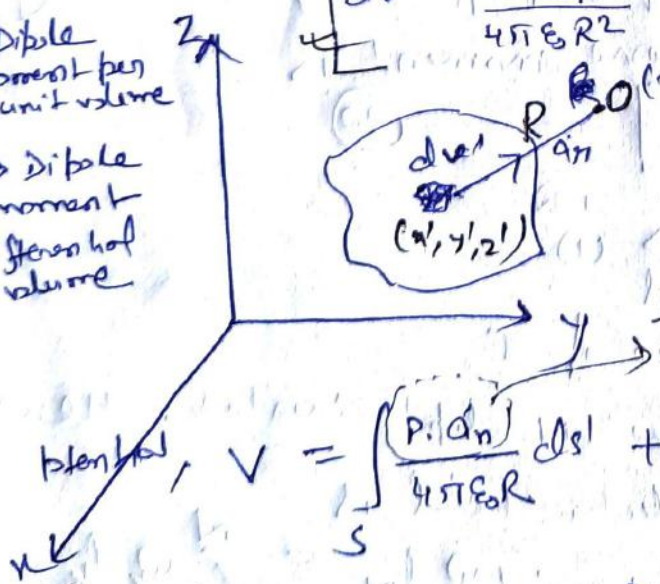 Dipole
moment per
unit volume
Dipole
moment
volume
Z
4πε₀R²
R
O
dv'
(x', y', z')
y
potential, V = ∫ (P·aₙ) / 4πε₀R ds' +
S
x